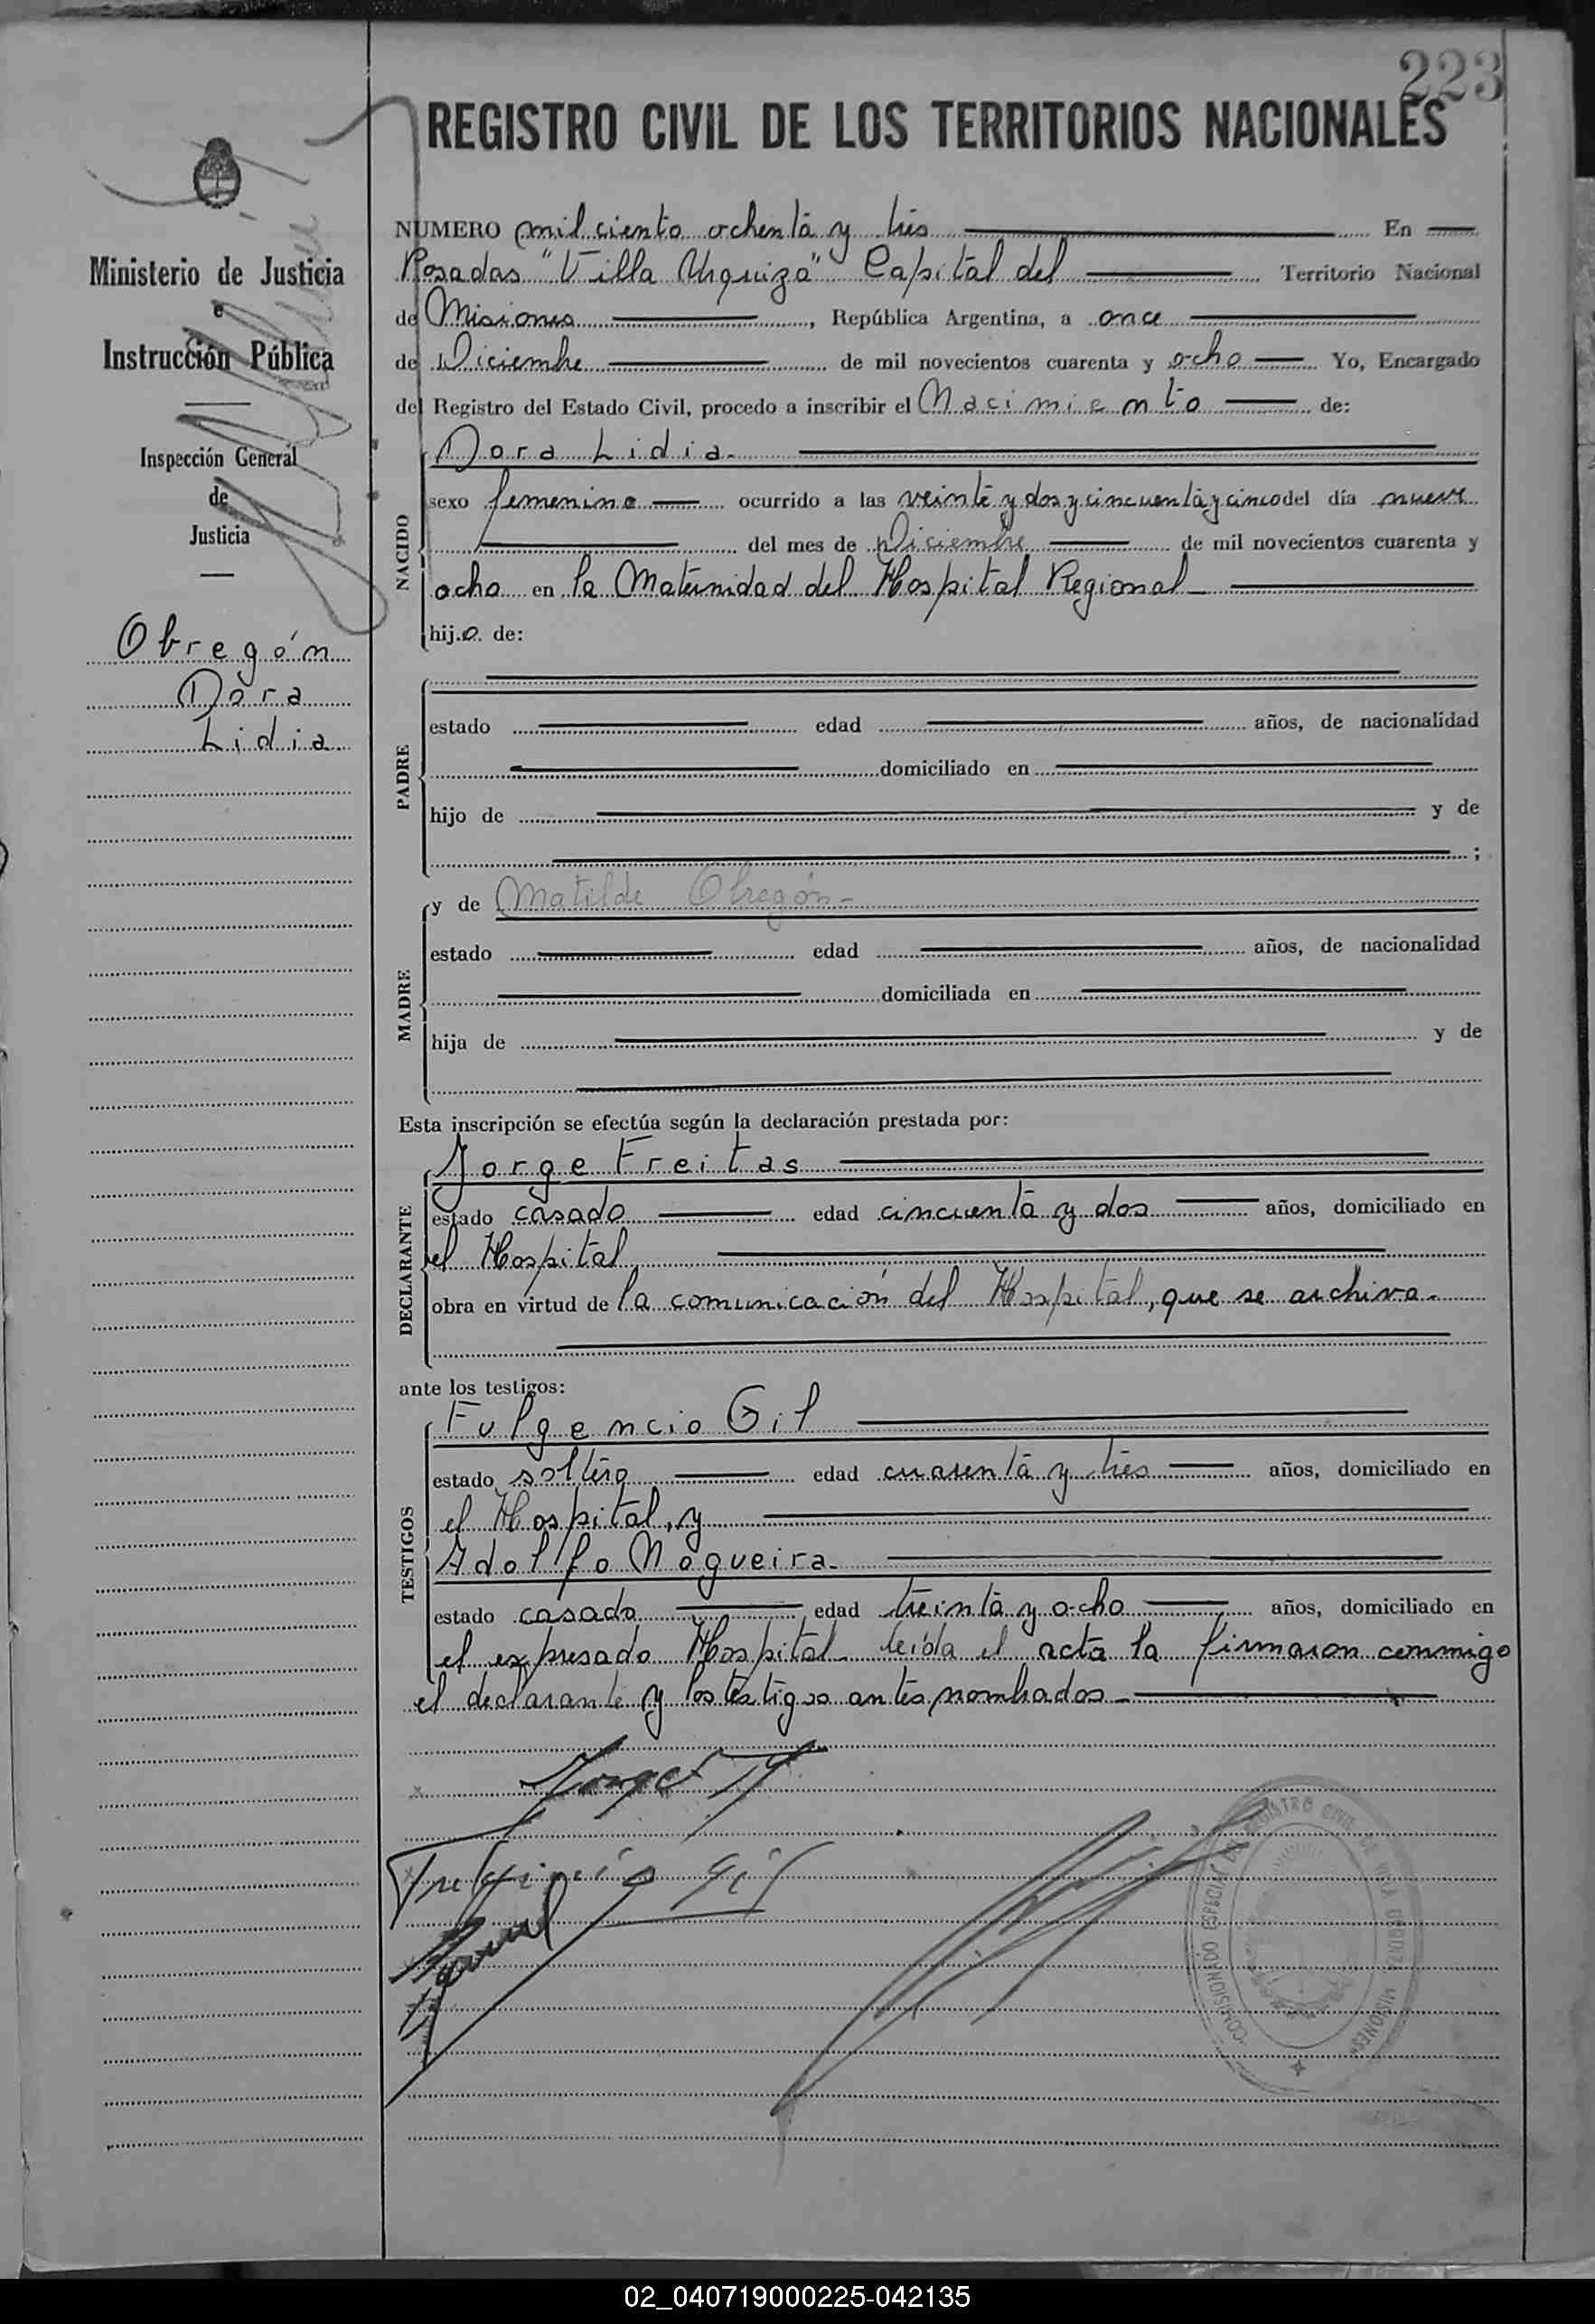 223
REGISTRO CIVIL DE LOS TERRITORIOS NACIONALES
Ministerio de Justicia
e
Instrucción Pública
Inspección General
de
Justicia
Obregón
Dora
Lidia
NUMERO mil ciento ochenta y tres En
Posadas "Villa Urquiza" Capital del Territorio Nacional
de Misiones, República Argentina, a once
de Diciembre de mil novecientos cuarenta y ocho Yo, Encargado
del Registro del Estado Civil, procedo a inscribir el Nacimiento de:
NACIDO
Dora Lidia.
sexo femenino ocurrido a las veinte y dos y cincuenta y cinco del día nueve
del mes de Diciembre de mil novecientos cuarenta y
ocho en la Maternidad del Hospital Regional
hij.a. de:
PADRE
estado edad años, de nacionalidad
domiciliado en
hijo de y de
;
MADRE
y de Matilde Obregón-
estado edad años, de nacionalidad
domiciliada en
hija de y de
Esta inscripción se efectúa según la declaración prestada por:
DECLARANTE
Jorge Freitas
estado casado edad cincuenta y dos años, domiciliado en
el Hospital
obra en virtud de la comunicación del Hospital, que se archiva.
ante los testigos:
TESTIGOS
Fulgencio Gil
estado soltero edad cuarenta y tres años, domiciliado en
el Hospital, y
Adolfo Nogueira.
estado casado edad treinta y ocho años, domiciliado en
el expresado Hospital. leída el acta la firmaron conmigo
el declarante y los testigos antes nombrados.-
Jorge F
Fulgencio Gil
COMISIONADO ESPECIAL DEL REGISTRO CIVIL DE VILLA URQUIZA MISIONES
02_040719000225-042135